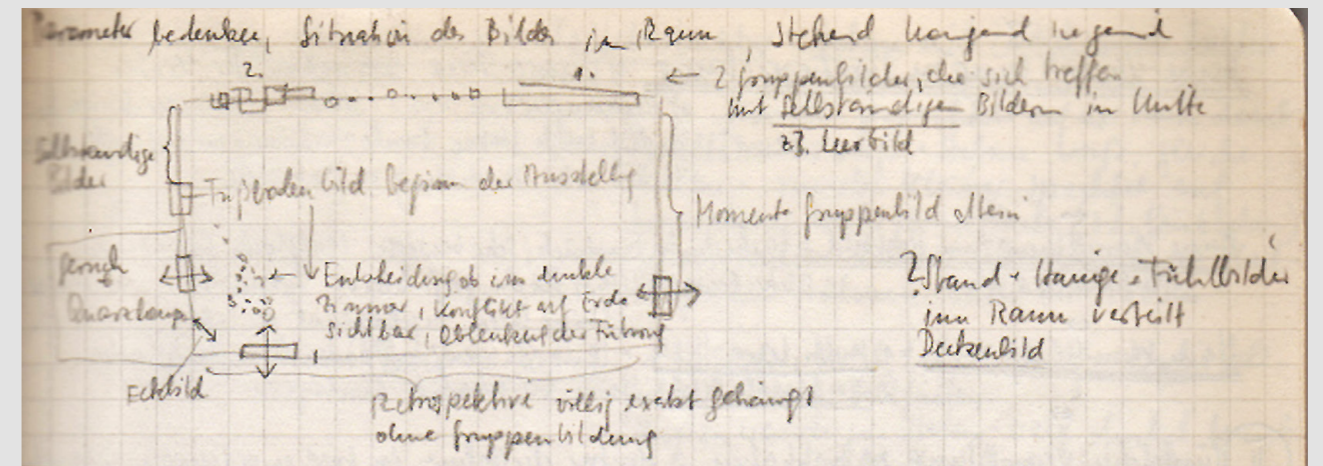 Parameter bedenken, Situation des Bildes im Raum, stehend hängend liegend
2. 1.
← 2 Gruppenbilder, die sich treffen
mit selbständigen Bildern in Mitte
z.B. Leerbild
Selbständige
Bilder
Fußbodenbild. Beginn der Ausstellung
Momente Gruppenbild allein
Geruch
Entscheidung ob ins dunkle
Zimmer, Konflikt auf Erde
sichtbar, Ablenkung der Führung
? Stand + Hänge + Fühlbilder
im Raum verteilt
Deckenbild
Eckbild
Retrospektive völlig exakt gehängt
ohne Gruppenbildung